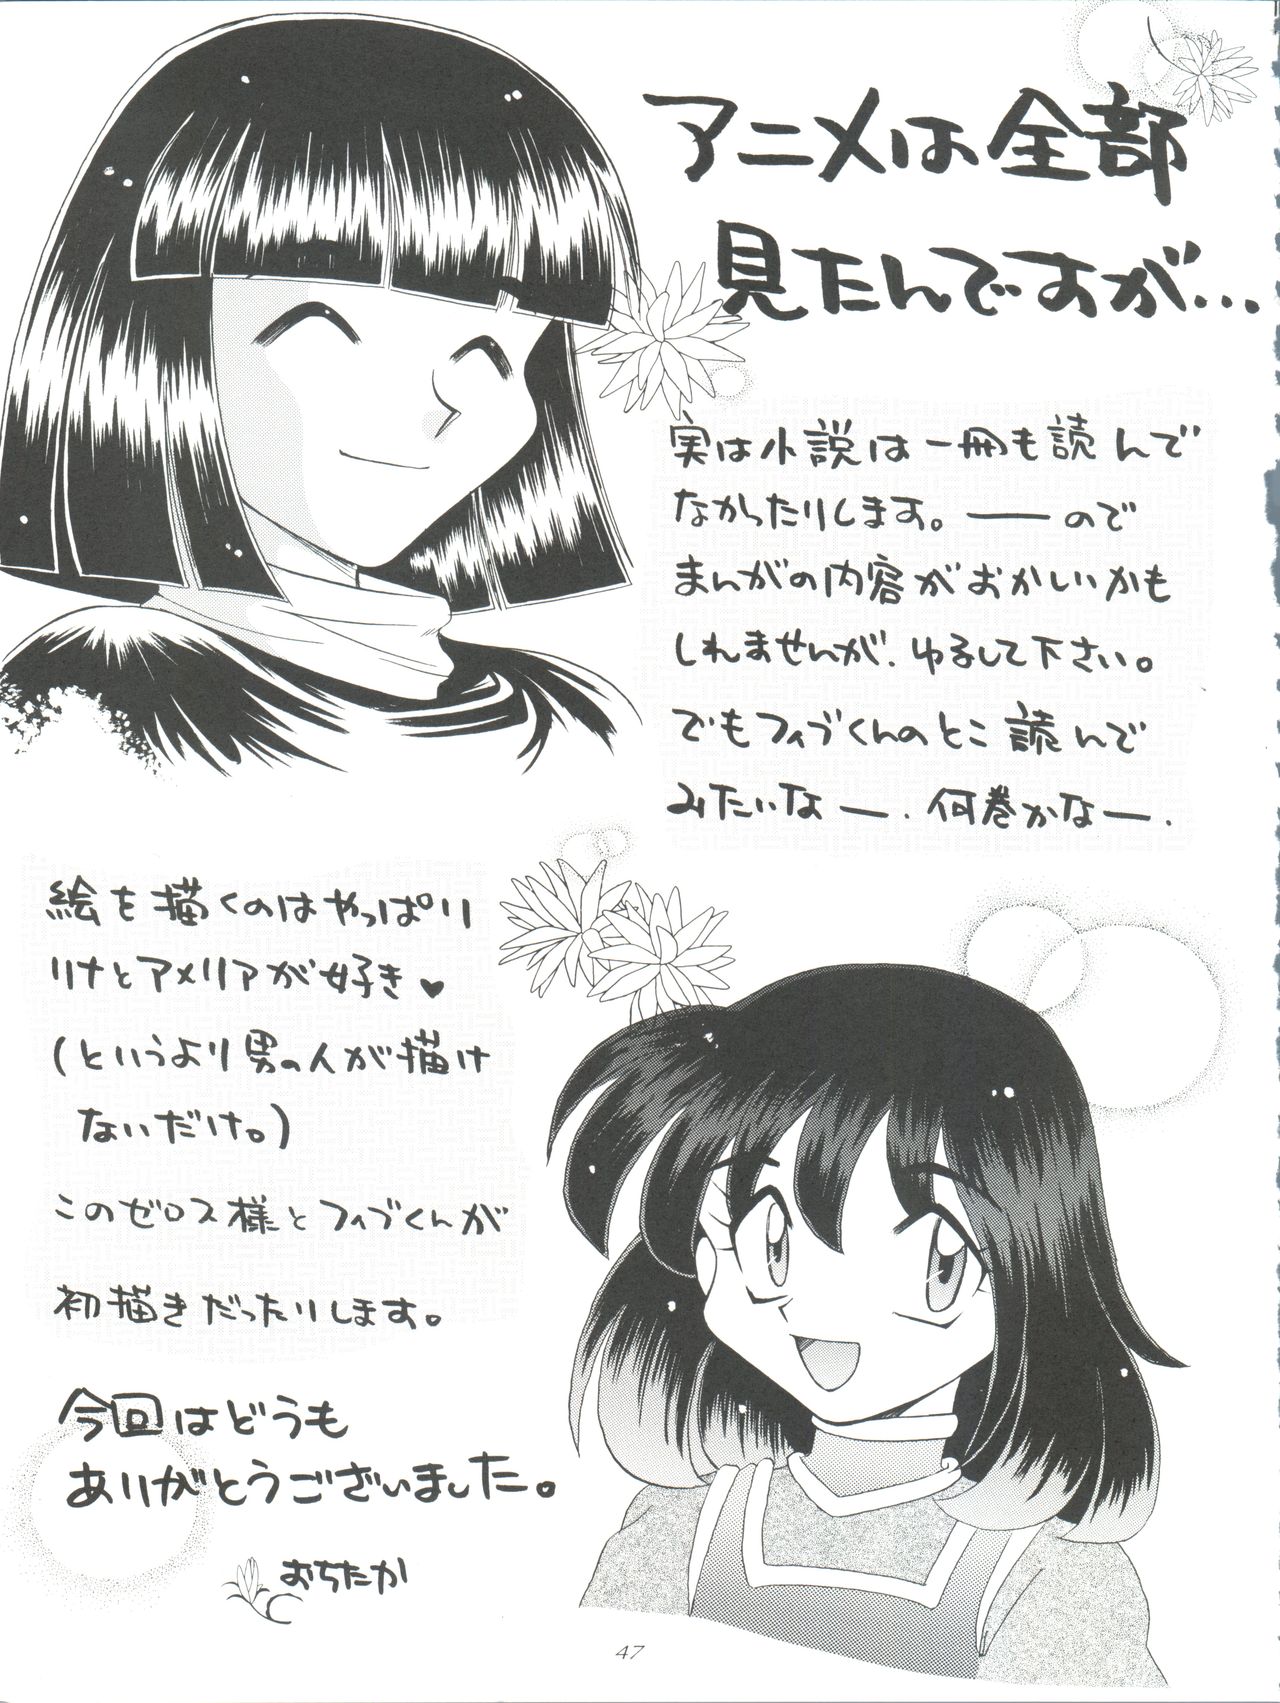 アニメは全部
見たんですが…
実は小説は一冊も読んで
なかったりします。――ので
まんがの内容がおかしいかも
しれませんが、ゆるして下さい。
でもフィブくんのとこ読んで
みたいなー、何巻かなー、
絵を描くのはやっぱり
リナとアメリアが好き♥
(というより男の人が描け
ないだけ。)
このゼロス様とフィブくんが
初描きだったりします。
今回はどうも
ありがとうございました。
おちたか
47